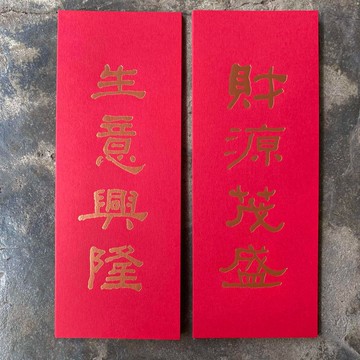 財源茂盛
生意興隆